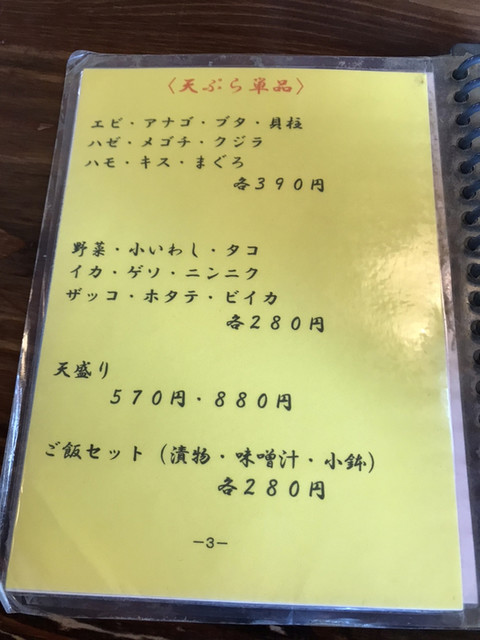 〈天ぷら単品〉
エビ・アナゴ・ブタ・貝柱
ハゼ・メゴチ・クジラ
ハモ・キス・まぐろ
各390円
野菜・小いわし・タコ
イカ・ゲソ・ニンニク
ザッコ・ホタテ・ビイカ
各280円
天盛り
570円・880円
ご飯セット(漬物・味噌汁・小鉢)
各280円
－3－